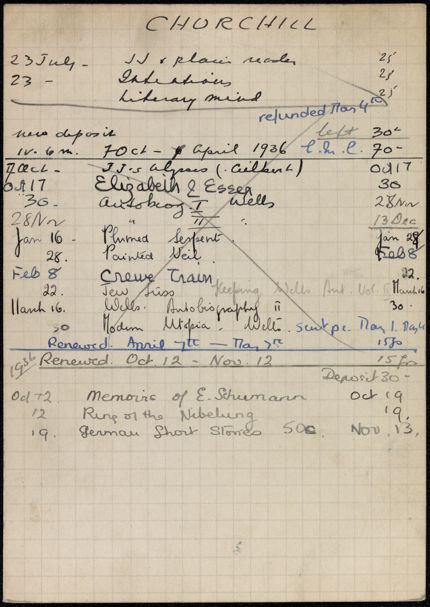 CHURCHILL
23 July - JJ & plain reader 25
23 - Intentions 25
Literary mind 25
refunded May 4th
new deposit left 30-
1v. 6m. 7 Oct - April 1936 70-
7 Oct - JJ's Ulysses (Gilbert) Oct 17
Oct 17 Elizabeth & Essex 30
30 - Autobiog. I Wells 28 Nov
28 Nov " II " 13 Dec
Jan 16 - Plumed Serpent. Jan 28
28. Painted Veil. Feb 8
Feb 8 Crewe Train 22.
22. Jew Süss Keeping Wells Aut. Vol. II March 16
March 16. Wells. Autobiography II 30.
30 Modern Utopia - Wells. sent pc. May 1. May 4
Renewed. April 7th - May 7th 15 frs
1936 Renewed. Oct. 12 - Nov. 12 15 frs
Deposit 30-
Oct 12. Memoirs of E. Schumann Oct 19
12 Ring of the Nibelung 19.
19. German Short Stories 50c Nov. 13.